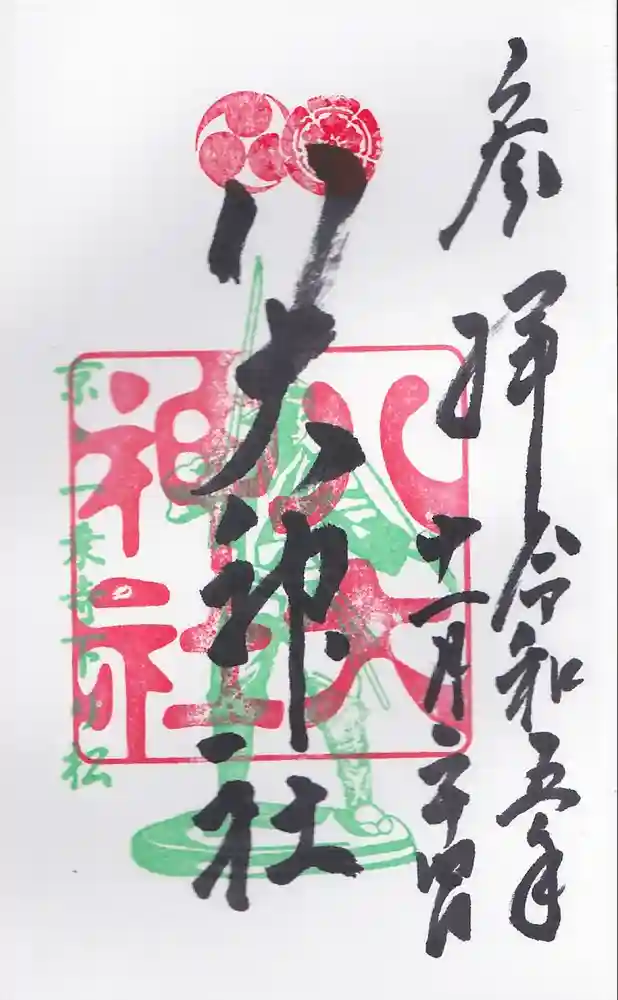 参拝
令和五年
十一月二十四日
八大神社
八大神社
京・一乗寺下り松